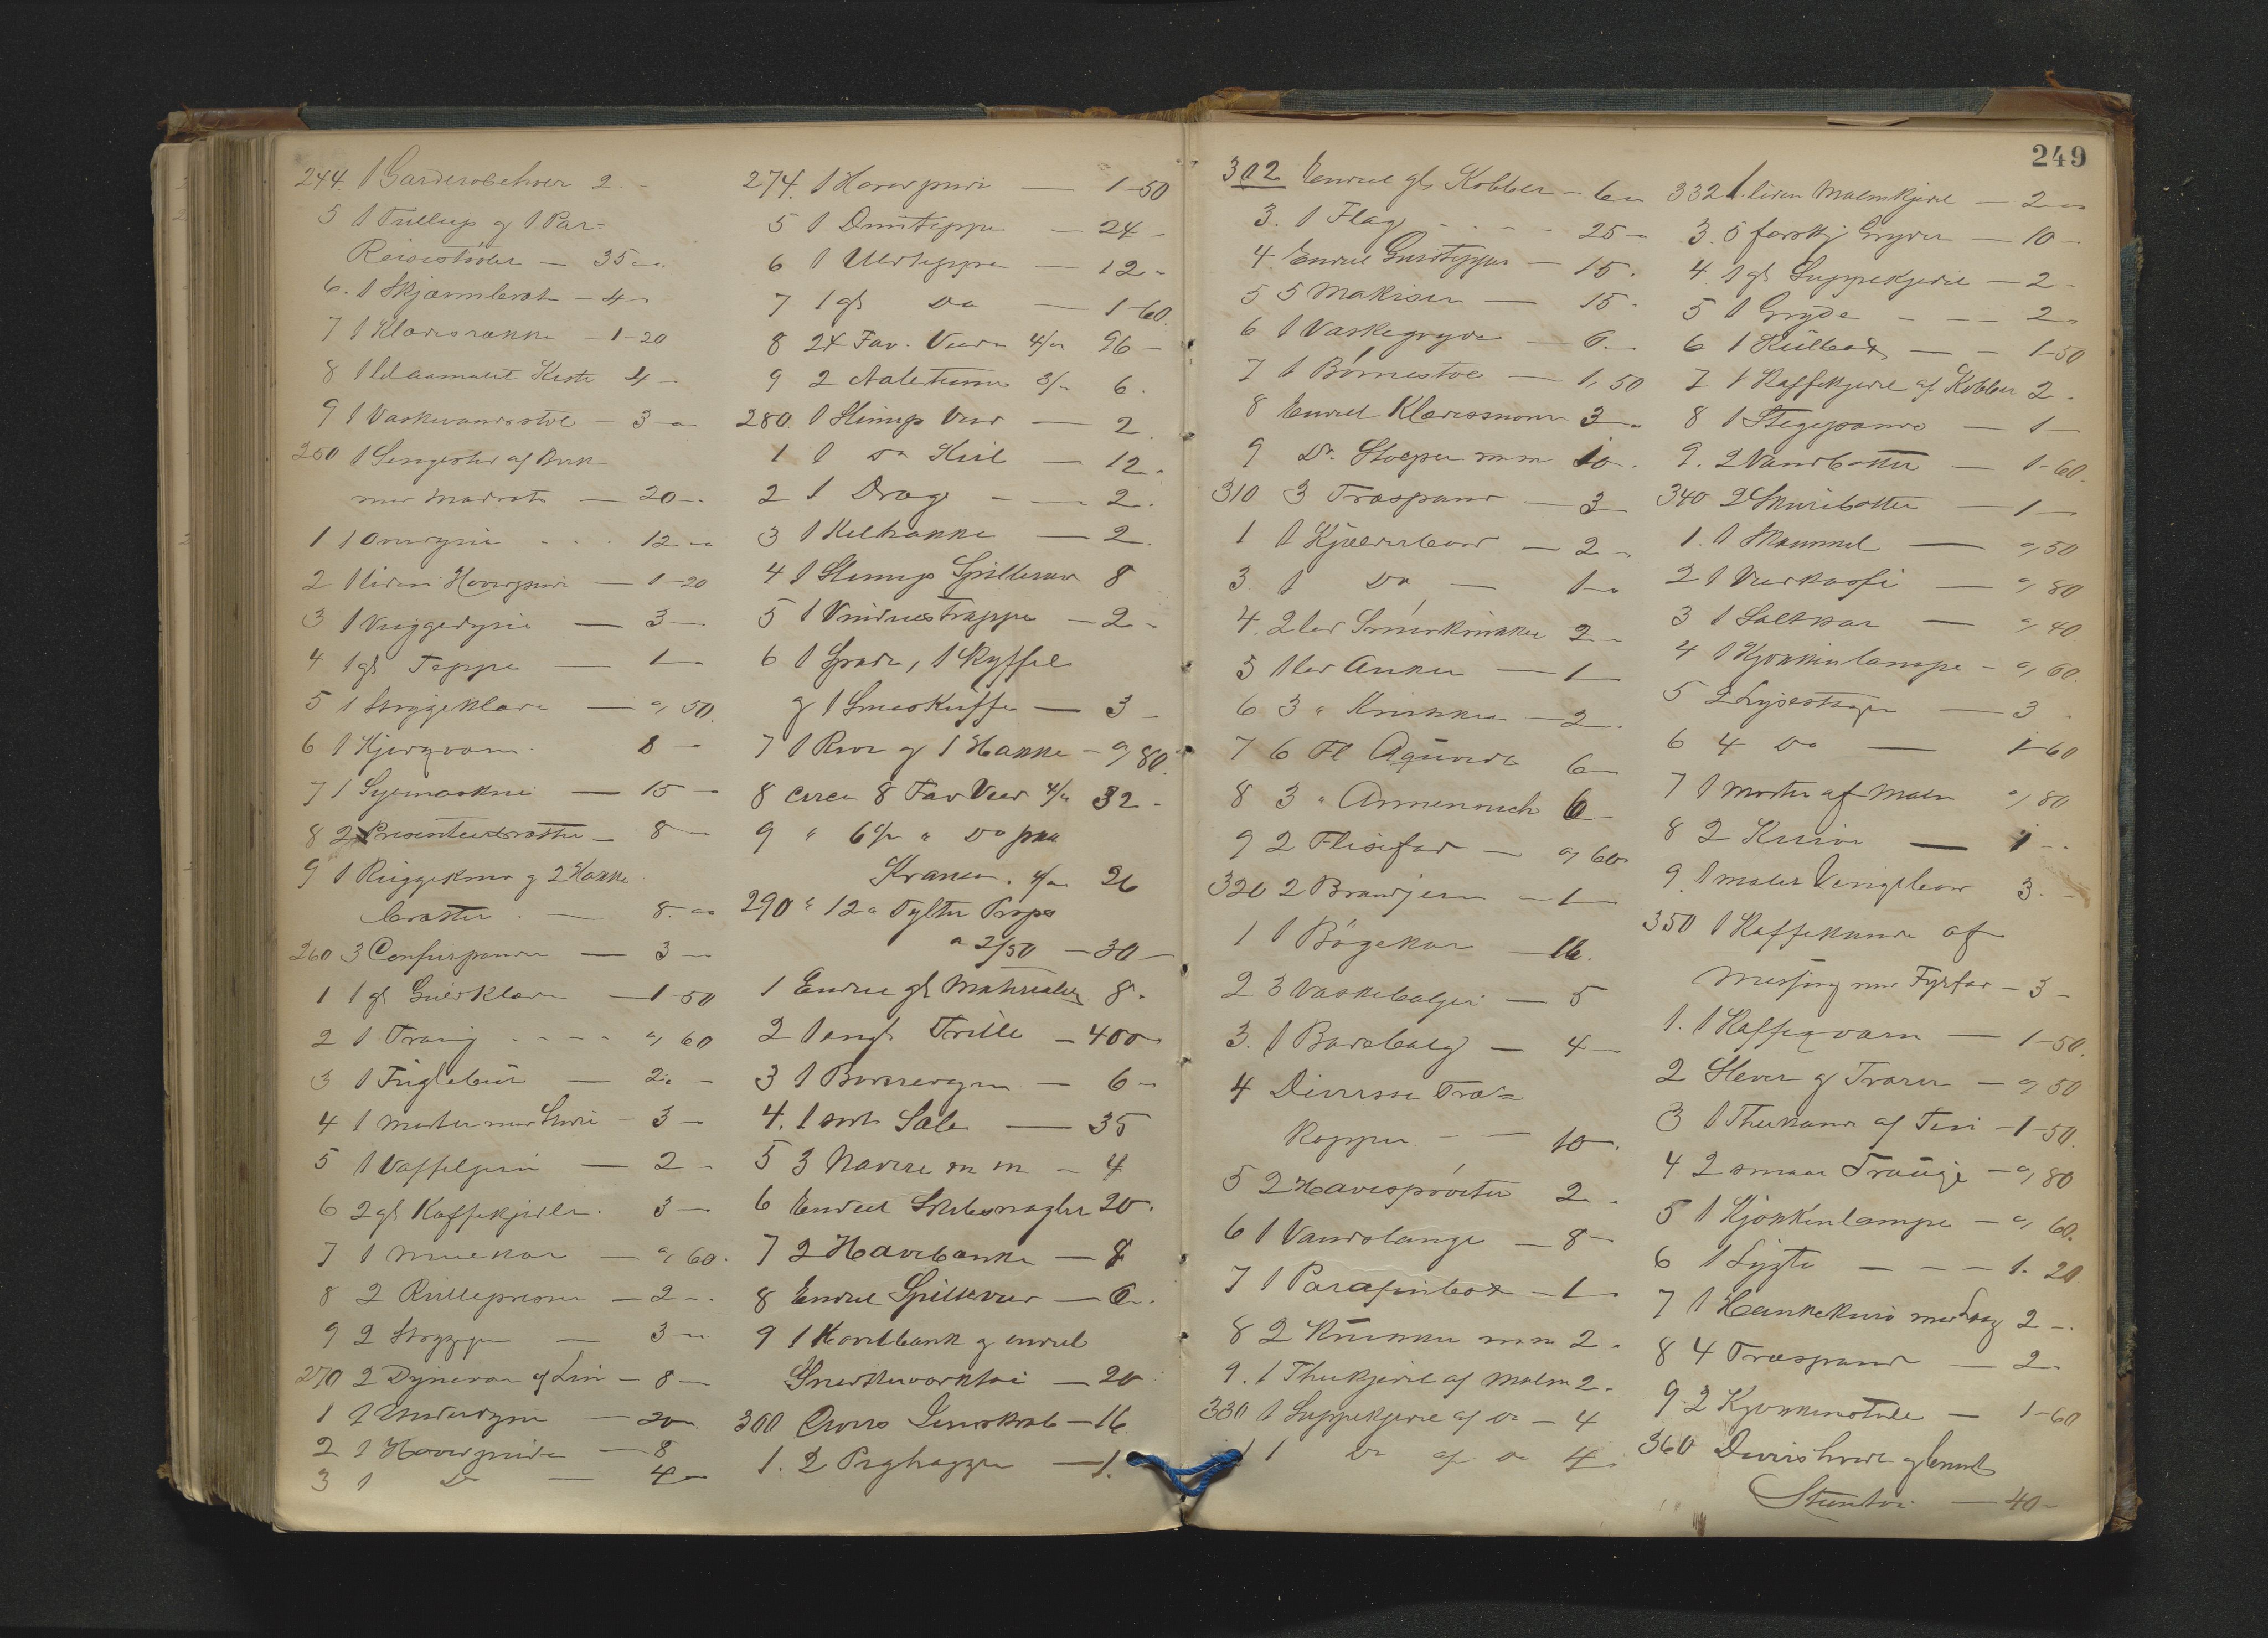 244. 1 Garderobehver 2 -
5 1 Tullup og 1 Par=
Reisestøvler — 35 -
6. 1 Skjærmbret — 4 -
7 1 Klædesrække — 1-20
8 1 lid aamalet Kiste 4 -
9 1 Vaskevandsstol — 3 -
250 1 Sengested af Birk
med Madrats — 20 -
1 1 Overdyne - - - 12 -
2 1 liden Hovedpude — 1-20
3 1 Vuggedyne — 3 -
4 1 gl Teppe — 1 -
5 1 Strygeklæde — "50
6 1 Kjørqvarn 8 -
7 1 Syemaskine — 15 -
8 2 Presenteerbretter — 8 -
9 1 Ruggekurv og 2 Hakke
bretter — 8. -
260 3 Confurpander — 3 -
1 1 gl Gulvklæde — 1-50
2 1 Traug - - - - " 60
3 1 Fuglebuur — 2. -
4 1 Morter med Støder — 3 -
5 1 Vaffeljern — 2 -
6 2 gl Kaffekjedler 3 -
7 1 Muekar — " 60.
8 2 Rullepresser — 2 -
9 2 Strygejern — 3 -
270 2 Dynevar af Lin — 8 -
1 2 Underdyner — 20 -
2 1 Hovedpude — 8
3 1 Do — 4 -
274. 1 Hovedpude — 1-50
5 1 Duunteppe — 24 -
6 1 Uldteppe — 12 -
7 1 gl Do — 1-60.
8 24 Fav. Veed 4/- 96 -
9 2 Aaletener 3/- 6.
280. 1 Slump Veed — 2.
1 1 Do Kul — 12.
2 1 Drag - — 2.
3 1 Kulhakke — 2.
4 1 Slump Spilleveed 8
5 1 Vinduestrappe — 2 -
6 1 Spade, 1 Skyffel
og 1 Sneeskuffe — 3 -
7 1 Rive og 1 Hakke — " 80.
8 circa 8 Fav Veed 4/- 32 -
9 " 6 1/2 " Do paa
Kranen. 4/- 26
290 " 12 " Tylter Props
a 2/50 — 30 —
1 Endeel gl Materialer 8.
2 1 engl Trille — 400 -
3 1 Børnevogn — 6 -
4. 1 sort Sæle — 35
5 3 Navere m m — 4
6 Endeel Skibsnagler 20.
7 2 Havebænke — 8
8 Endeel Spilleveed — 6 -
9 1 Høvelbænk og endeel
Snedkerværktøi — 20
300 Divers Jernskrab — 16
1. 2 Pighapper — 1.
249
302 Endeel gl. Kobber — 6 -
3. 1 Flag - - - - 25 -
4. Endeel Gulvtepper — 15.
5 5 Markiser — 15 -
6 1 Vaskegryde — 6 -
7 1 Børnestol — 1,50
8 Endeel Klædessnorer 3 -
9 Do. Stolper m m 10 -
310 3 Træspand — 3
1 1 Kjælderbord — 2 -
3 1 Do — 1 -
4. 2 led Smørkrukker 2 -
5 1 led Anker — 1 -
6 3 " Krukker — 2.
7 6 Fl Aquavit 6 -
8 3 " Ammenouch 6 -
9 2 Flisefad — " 60
320 2 Brandjern — 1 -
1 1 Bøgekar — 16.
2 3 Vaskebaljer — 5
3. 1 Badebalg — 4 -
4 Diverse Træ=
kopper - - 10.
5 2 Havesprøiter 2 -
6 1 Vandslange — 8 -
7 1 Parafinbox — 1 -
8 2 Krukker m m 2 -
9. 1 Theekjedel af Malm 2 -
330 1 Suppekjedel af Do — 4
1 1 Do af Do 4 -
332 1. liden Malmkjedel — 2 -
3. 5 forskj Gryder — 10 -
4. 1 gl Suppekjedel — 2 -
5 1 Gryde - - - 2 -
6 1 Kulbox — - 1-50
7 1 Kaffekjedel af Kobber 2.
8 1 Stegepande — 1 -
9. 2 Vandbøtter — 1-60.
340 2 Skurebøtter — 1 —
1. 1 Skammel — " 50
2 1 Veedkasse — " 80
3 1 Saltkar — " 40
4 1 Kjøkkenlampe — " 60.
5 2 Lysestager — 3 -
6 4 Do — 1-60
7 1 Morter af Malm " 80
8 2 Kurve — 1 -
9. 1 malet Vingebord 3 -
350 1 Kaffekande af
Messing med Fyrfad — 3 -
1. 1 Kaffeqvarn — 1-50.
2 Slever og Tvarer — " 50
3 1 Theekande af Tin — 1-50.
4 2 smaae Trauge — " 80
5 1 Kjøkkenlampe — " 60.
6 1 Lygte — - - - 1. 20
7 1 Hankekurv med Laag 2 -
8 4 Træspand — 2 -
9. 2 Kjøkkenstole — 1-60
360 Diverse hvidt og brunt
Steentøi — 40 -